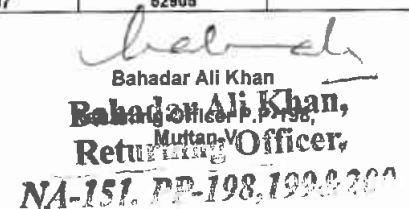 52905
Bahadar Ali Khan
Returning Officer P.P-198,
Multan-V
Bahadar Ali Khan,
Returning Officer,
NA-151, PP-198,199 & 200